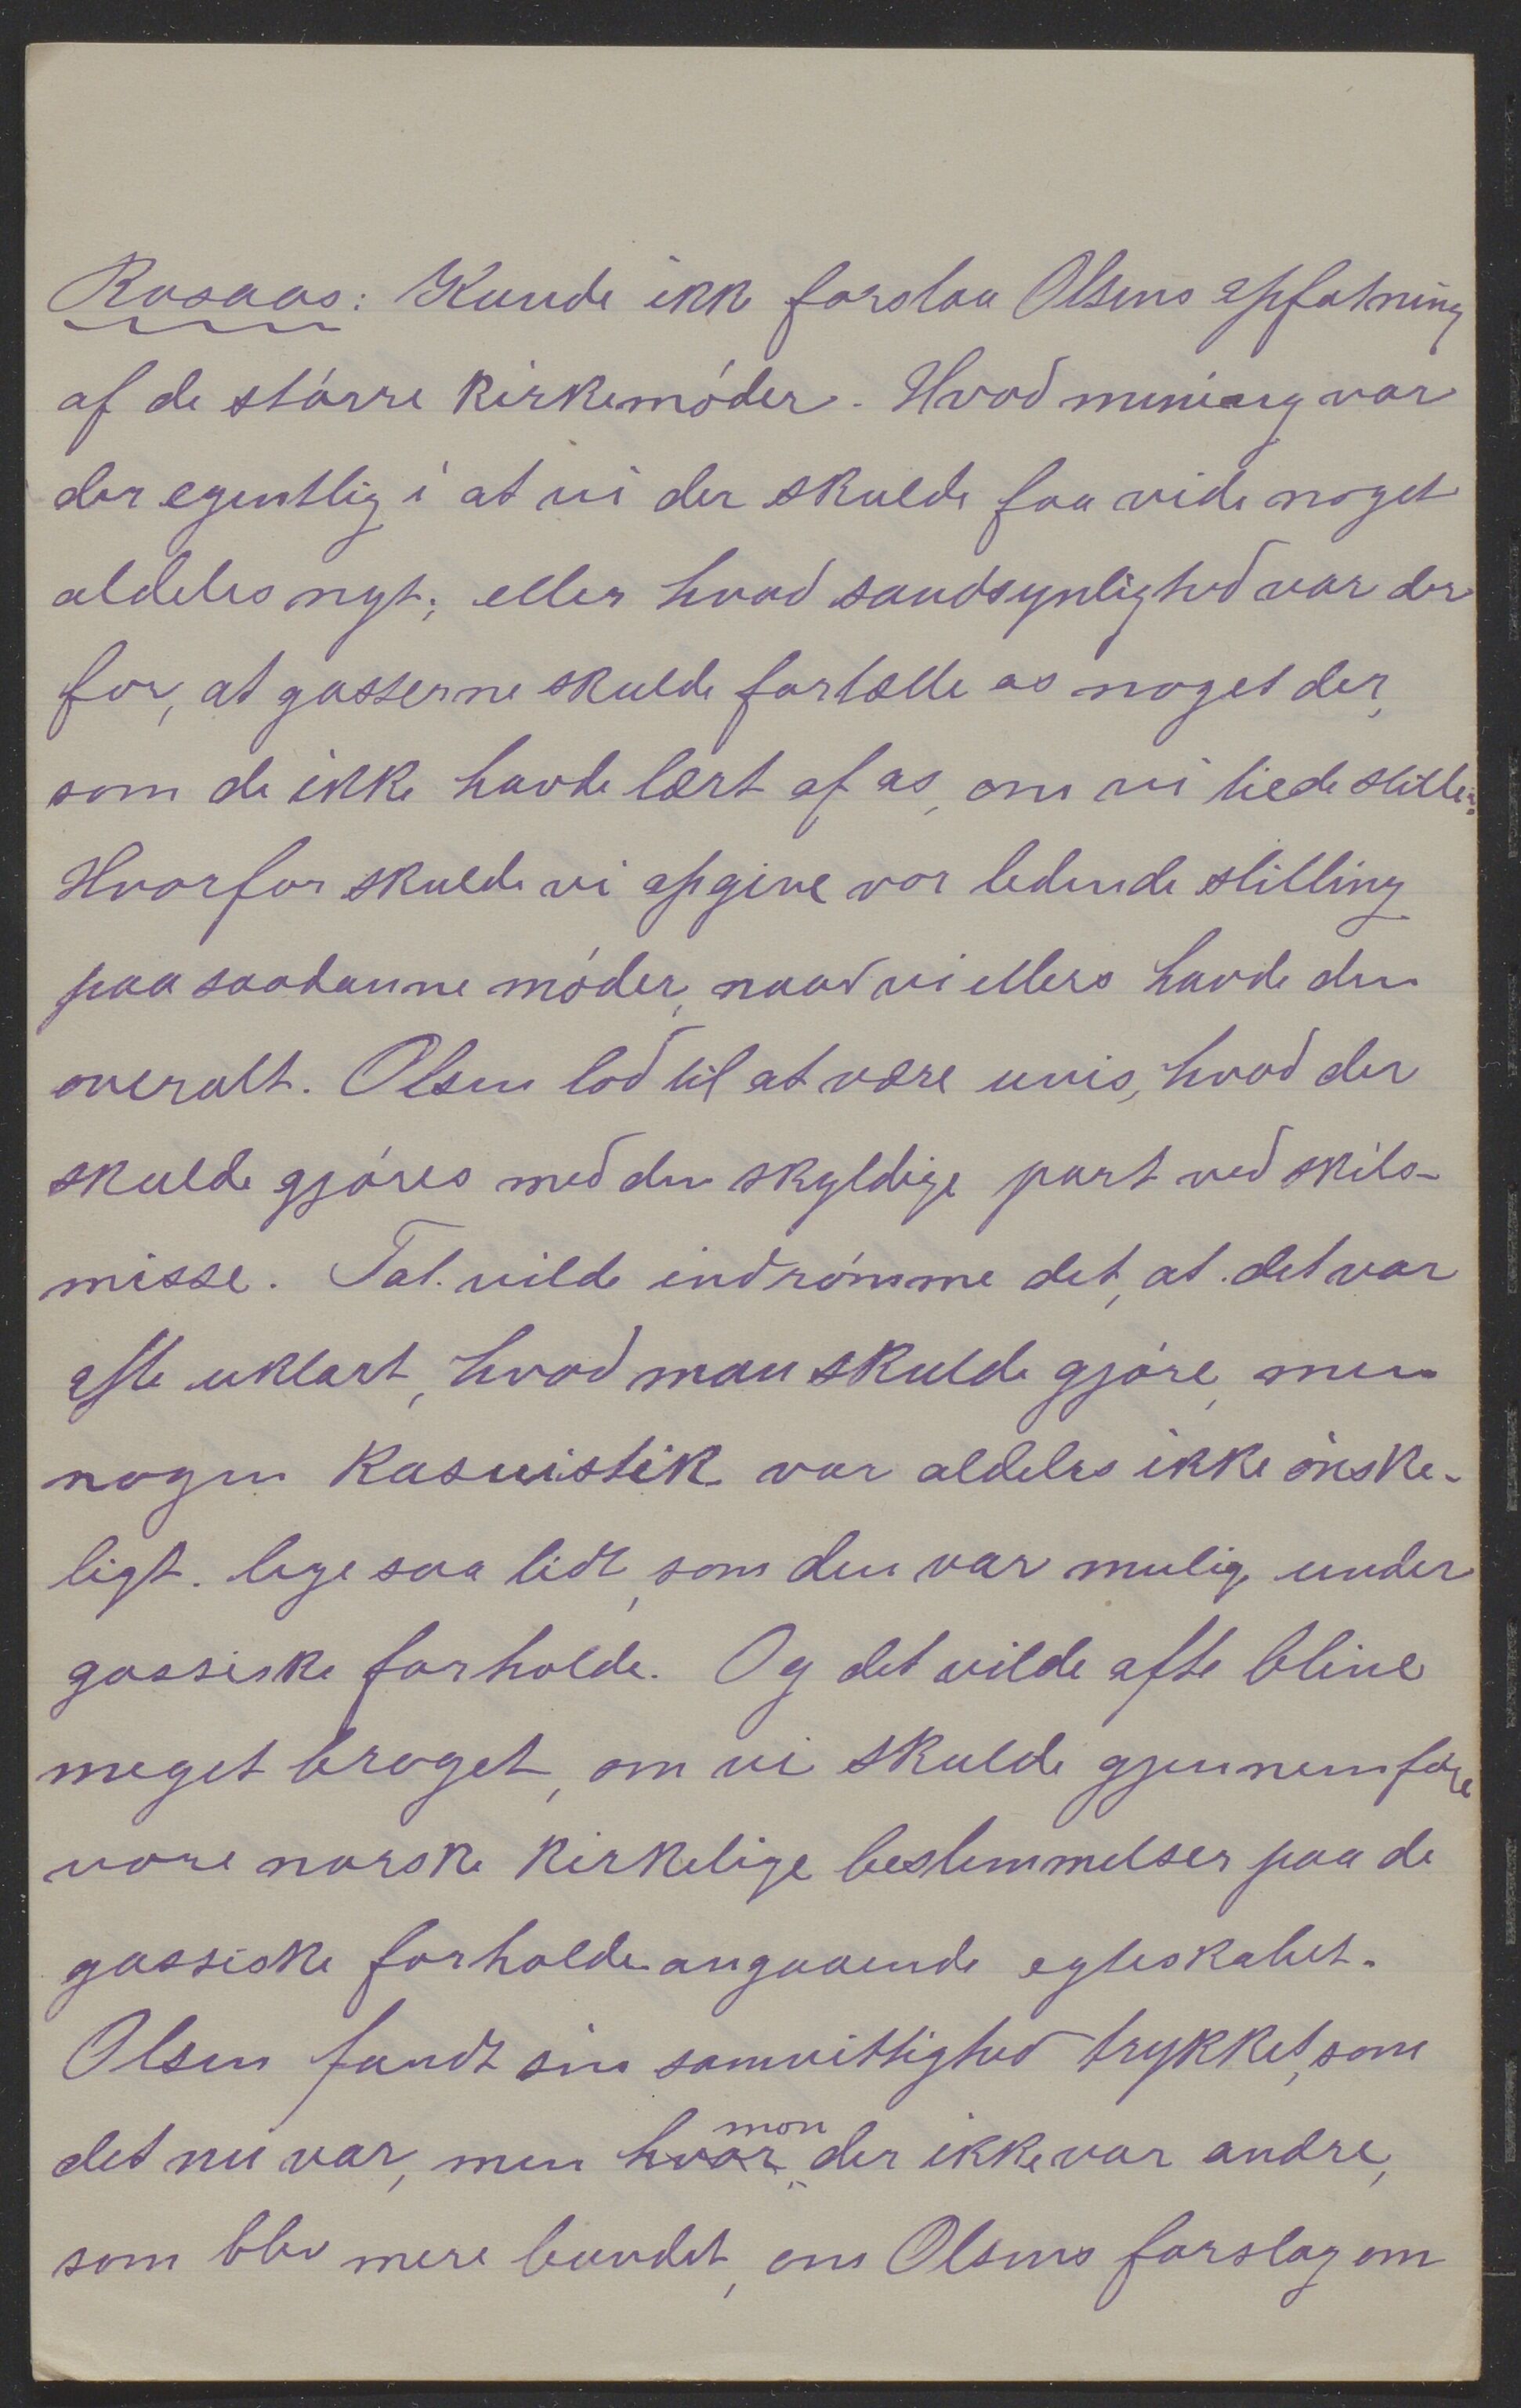 Rosaas: Kunde ikk forstaa Olsens opfatning
af de større kirkemøder. Hvad mening var
der egentlig i at vi der skulde faa vide noget
aldeles nyt; eller hvad sandsynlighed var der
for, at gasserne skulde fortælle os noget der,
som de ikke havde lært af os, om vi tiede stille?
Hvorfor skulde vi opgive vor ledende stilling
paa saadanne møder, naar vi ellers havde den
overalt. Olsen lod til at være uvis, hvad der
skulde gjøres med den skyldige part ved skils-
misse. Tal. vilde indrømme det, at det var
ofte uklart, hvad man skulde gjøre, men
nogen kasuistik var aldeles ikke ønske-
ligt. lige saa lidt, som den var mulig under
gassiske forholde. Og det vilde ofte blive
meget broget, om vi skulde gjennemføre
vore norske kirkelige bestemmelser paa de
gassiske forholde angaaende egteskabet.
Olsen fandt sin samvittighed trykket, som
det nu var, men hvor mon der ikke var andre,
som blev mere bundet, om Olsens forslag om